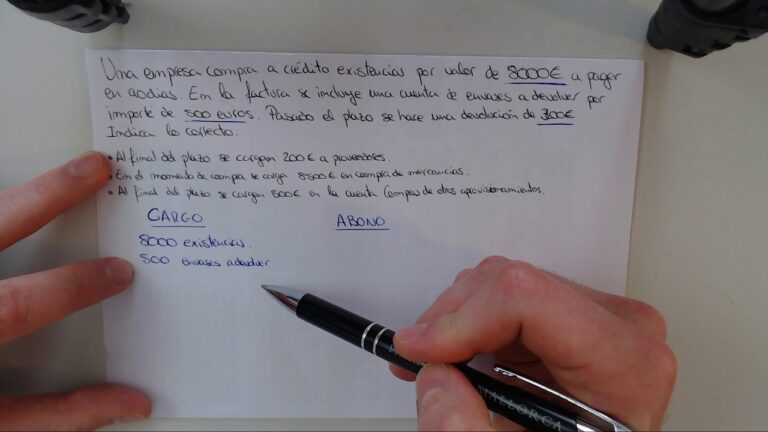 Una empresa compra a crédito existencias por valor de 8000€ a pagar
en 90 dias. En la factura se incluye una cuenta de envases a devolver por
importe de 500 euros. Pasado el plazo se hace una devolución de 300€
Indica lo correcto.
• Al final del plazo se cargan 200€ a proveedores.
• En el momento de compra se carga 8500€ en compra de mercancias.
• Al final del plazo se cargan 500€ en la cuenta Compras de otros aprovisionamientos.
CARGO ABONO
8000 existencias.
500 envases a devolver
MALLORCA